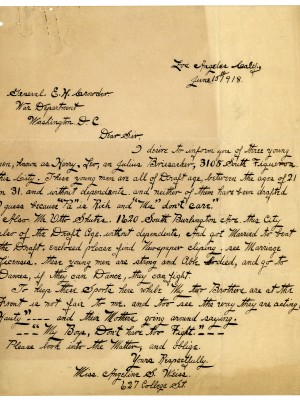 Los Angeles Calif.
June 15th 1918.
General E. H. Crowder
War Department
Washington D C
Dear Sir.
I desire to inform you of three young
men, known as Harry, Leo, an Julius 3105 South Figueroa
this City. These young men are all of Draft age, between the ages of 21
an 31, and without dependents, and neither of them have been drafted
guess because "Pa" is Rich and "Ma" don't care"
Also Mr Otto 1620 South Burlington Ave this City,
also of the Draft Age, without dependents, And got Married to beat
the Draft, enclosed please find Newspaper cliping, see Marriage
Licenses. these young men are strong and Able bodied, and go to
Dances, if they can Dance, they can fight.
To keep these Sports here while My two Brothers are at the
Front is not fair to me, and too see the way they are acting
and their Mothers going around saying.
"My Boys, Don't have too Fight."
Please look into the Matter, and oblige.
Yours Respectfully.
Miss Angeline S. Weiss.
627 College St.